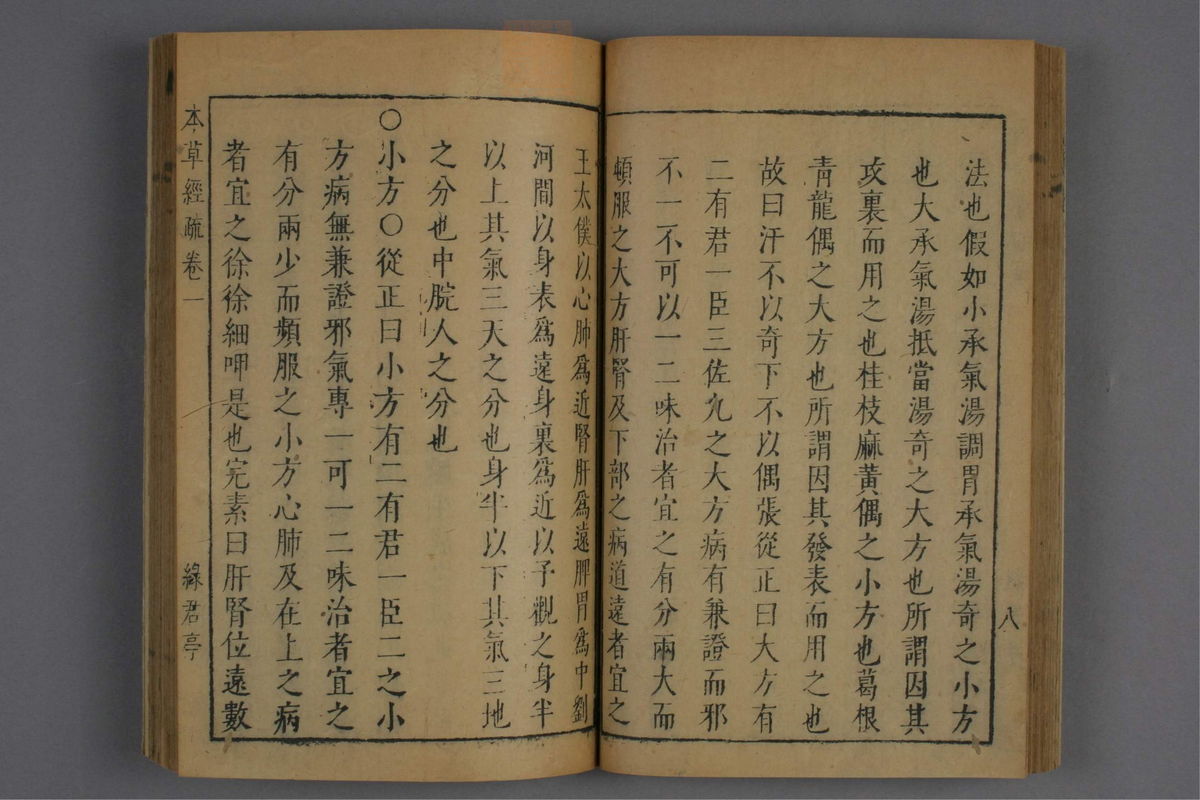 八
法也假如小承氣湯調胃承氣湯奇之小方
也大承氣湯抵當湯奇之大方也所謂因其
攻裏而用之也桂枝麻黃偶之小方也葛根
靑龍偶之大方也所謂因其發表而用之也
故曰汗不以奇下不以偶張從正曰大方有
二有君一臣三佐九之大方病有兼證而邪
不一不可以一二味治者宜之有分兩大而
頓服之大方肝腎及下部之病道遠者宜之
王太僕以心肺爲近腎肝爲遠脾胃爲中劉
河間以身表爲遠身裏爲近以予觀之身半
以上其氣三天之分也身半以下其氣三地
之分也中脘人之分也
○小方○從正曰小方有二有君一臣二之小
方病無兼證邪氣專一可一二味治者宜之
有分兩少而頻服之小方心肺及在上之病
者宜之徐徐細呷是也完素曰肝腎位遠數
本草經疏卷一
綠君亭